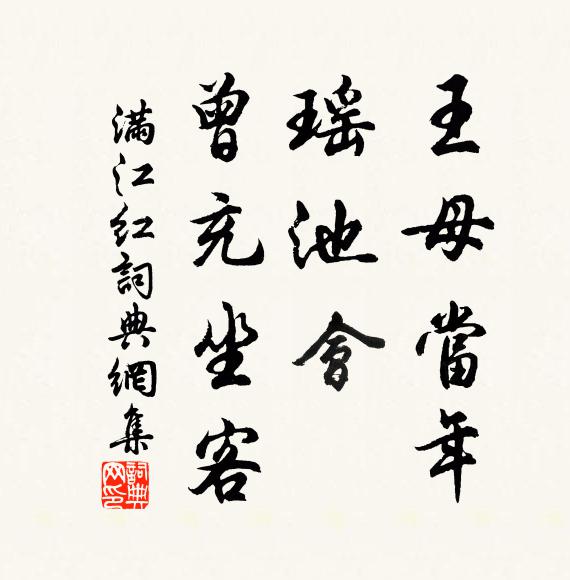 王母當年
瑤池會
曾充坐客
滿江紅詞典網集
詞典网印